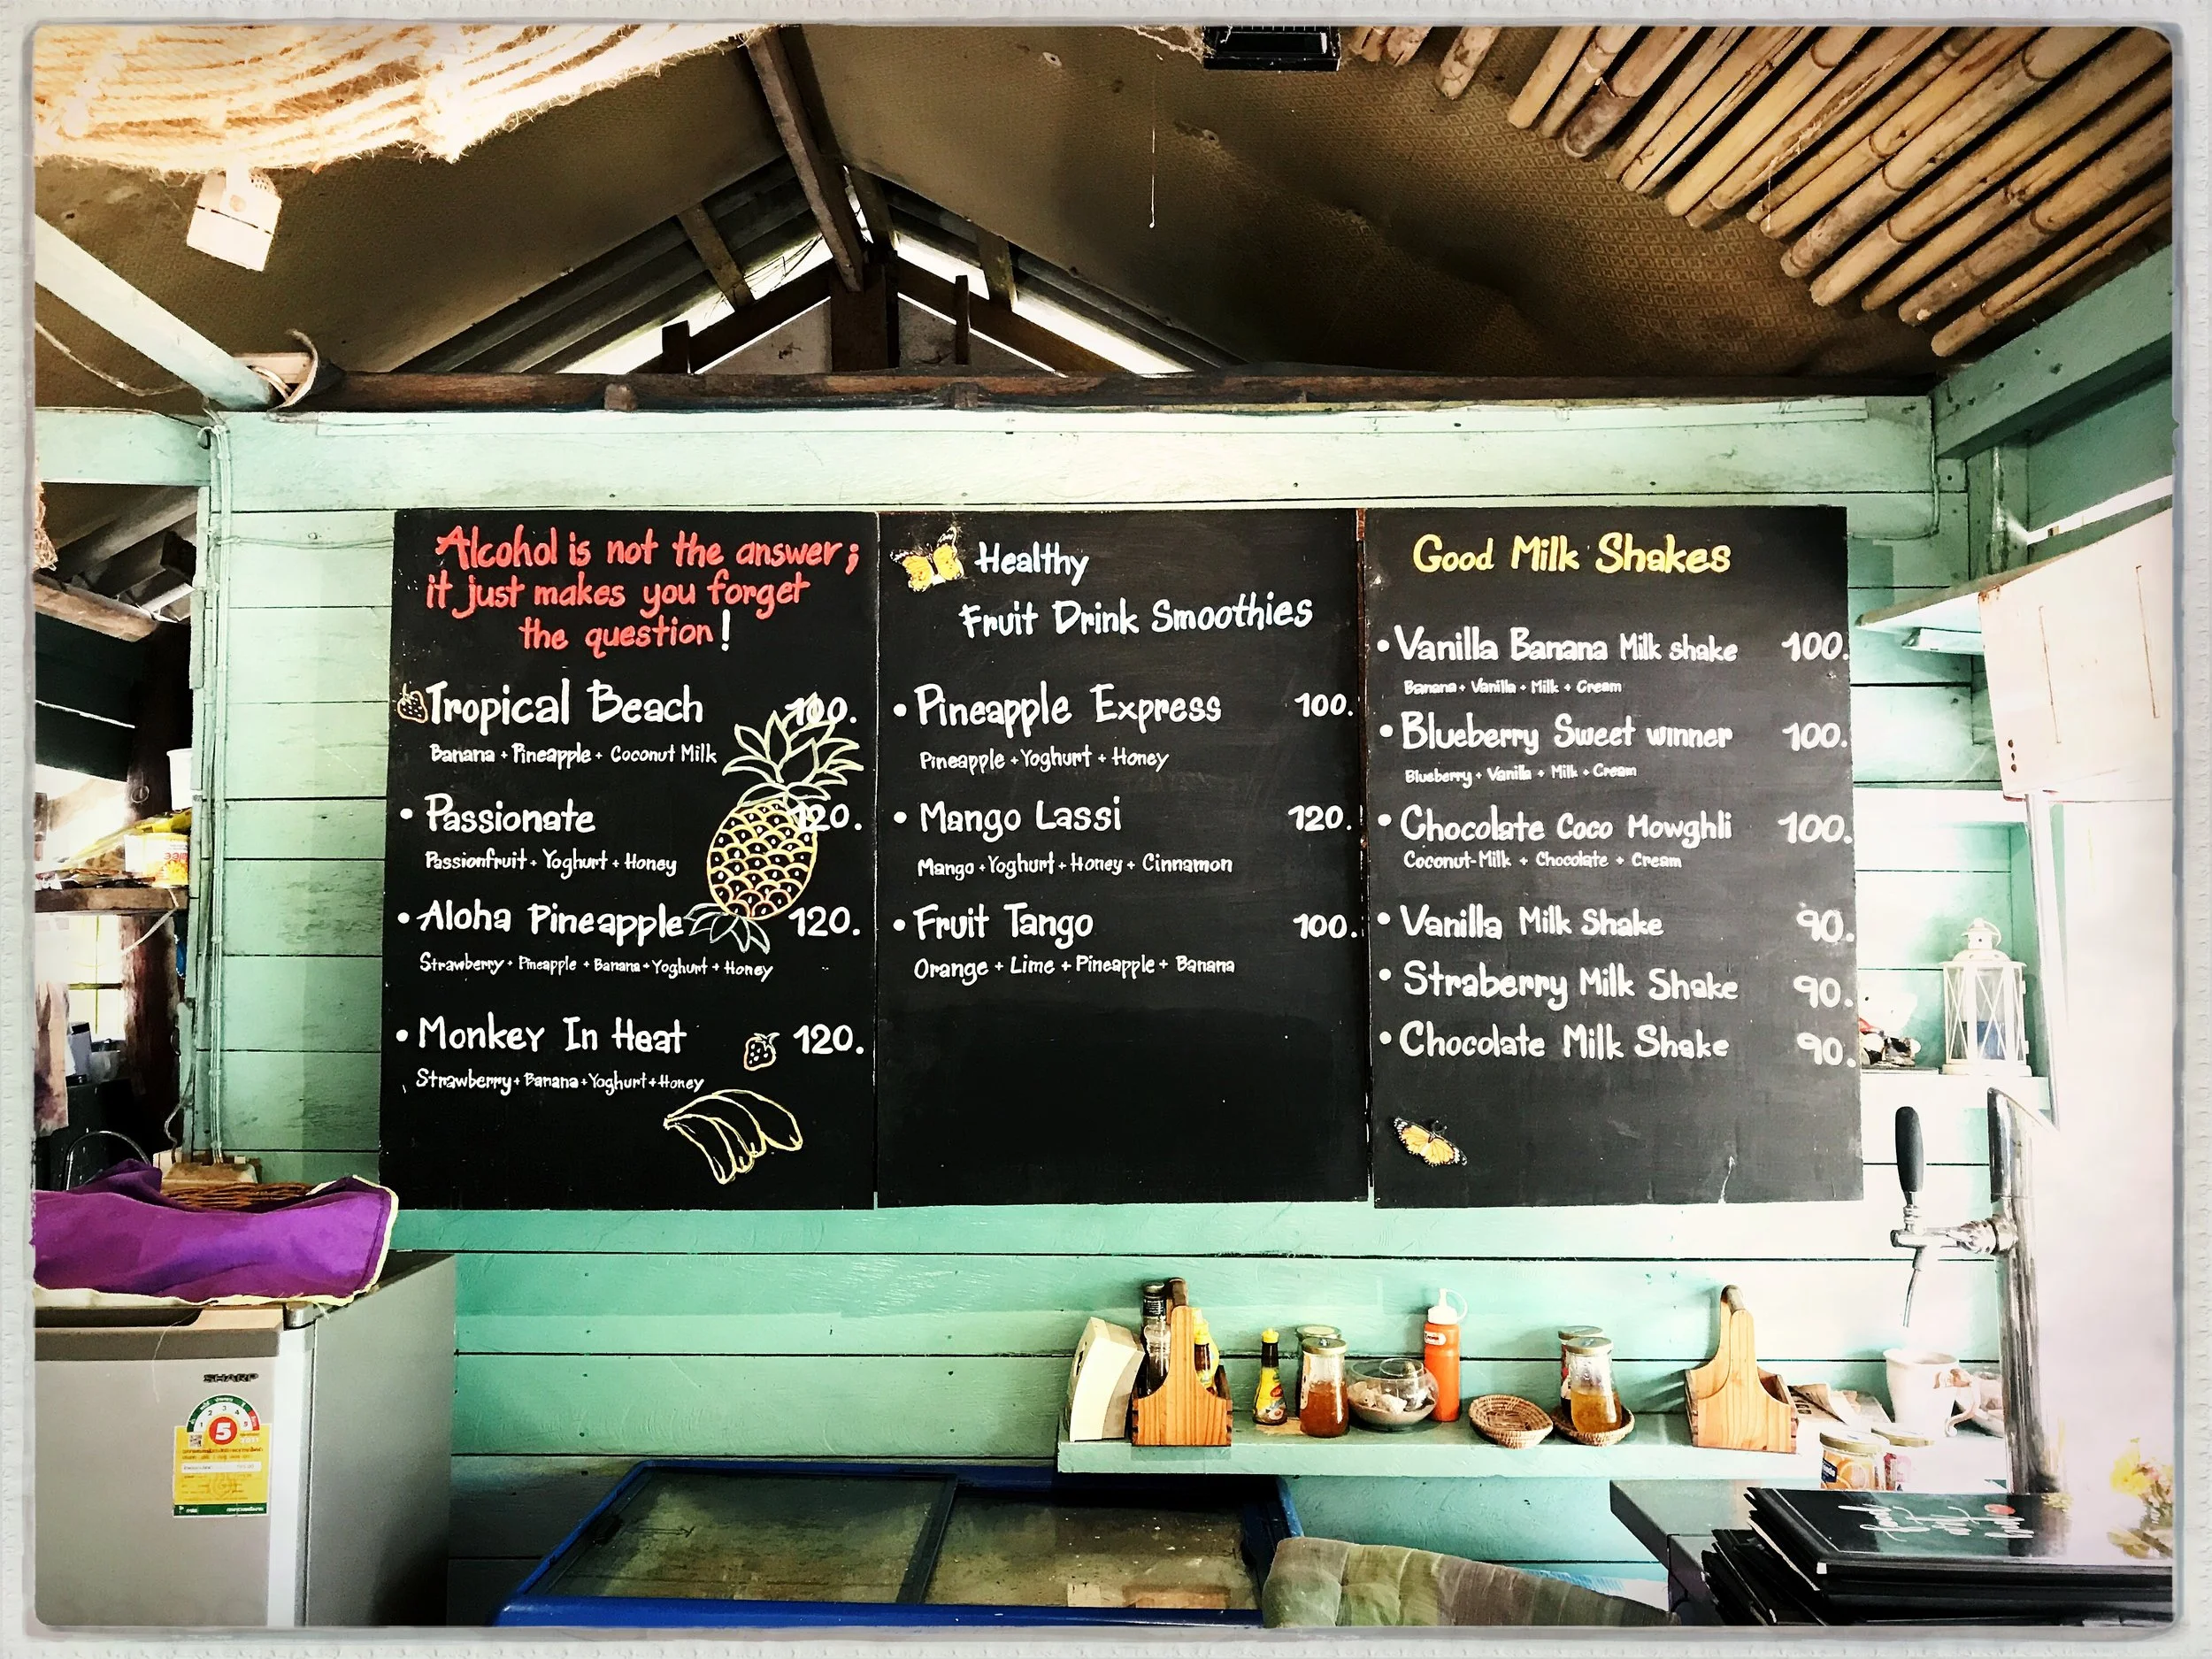 Alcohol is not the answer;
it just makes you forget
the question!
Tropical Beach 100.
Banana + Pineapple + Coconut Milk
• Passionate 120.
Passionfruit + Yoghurt + Honey
• Aloha Pineapple 120.
Strawberry + Pineapple + Banana + Yoghurt + Honey
• Monkey In Heat 120.
Strawberry + Banana + Yoghurt + Honey
Healthy
Fruit Drink Smoothies
• Pineapple Express 100.
Pineapple + Yoghurt + Honey
• Mango Lassi 120.
Mango + Yoghurt + Honey + Cinnamon
• Fruit Tango 100.
Orange + Lime + Pineapple + Banana
Good Milk Shakes
• Vanilla Banana Milk shake 100.
Banana + Vanilla + Milk + Cream
• Blueberry Sweet winner 100.
Blueberry + Vanilla + Milk + Cream
• Chocolate Coco Mowghli 100.
Coconut-Milk + Chocolate + Cream
• Vanilla Milk Shake 90.
• Straberry Milk Shake 90.
• Chocolate Milk Shake 90.
SHARP
1 2 3 4 5
5